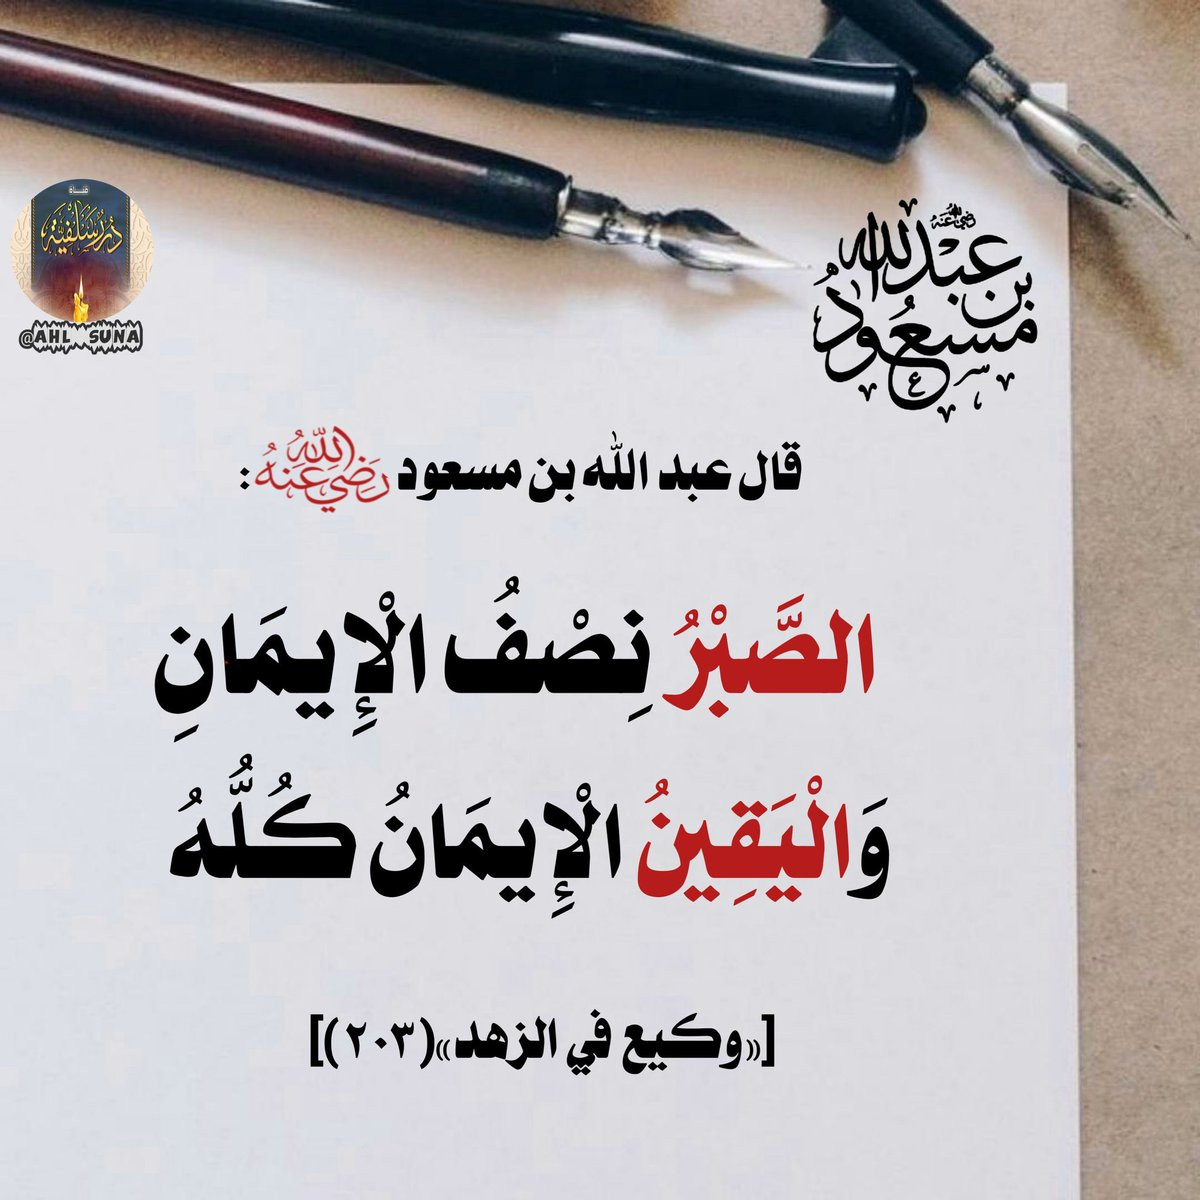 قناة
درر سلفية
@AHL_SUNA
عبد الله بن مسعود رضي الله عنه
قال عبد الله بن مسعود رضي الله عنه :
الصَّبْرُ نِصْفُ الْإِيمَانِ
وَالْيَقِينُ الْإِيمَانُ كُلُّهُ
[«وكيع في الزهد»(٢٠٣)]